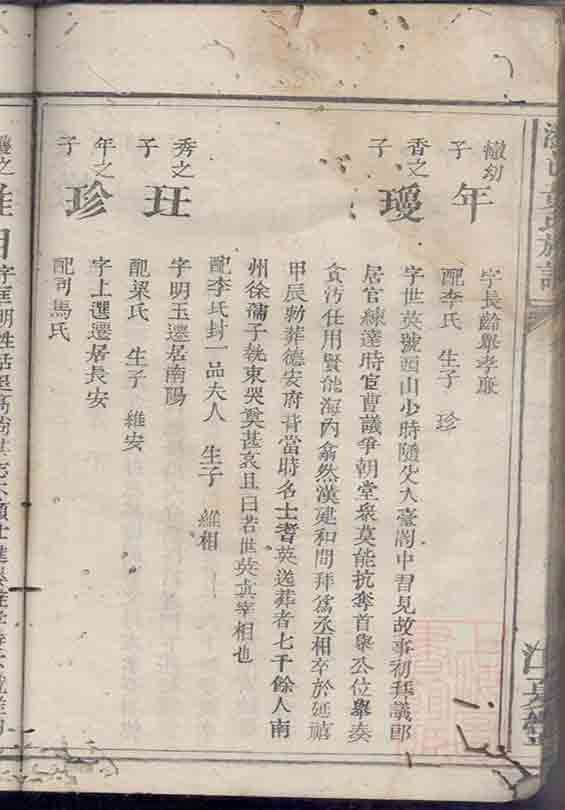 黃氏族譜
江夏堂
轍幼
子
年
字長齡舉孝廉
配李氏 生子 珍
香之
子
瓊
字世英號西山少時隨父入臺閣中習見故事初拜議郎
居官練達時官曹議爭朝堂衆莫能抗奪首舉公位舉奏
貪汚任用賢能海內翕然漢建和間拜爲丞相卒於延禧
甲辰勅葬德安府背當時名士耆英送葬者七千餘人南
州徐孺子執束哭奠甚哀且曰若世英真宰相也
配李氏封一品夫人 生子 維相
秀之
子
玨
字明玉遷居南陽
配梁氏 生子 維安
年之
子
珍
字上選遷居長安
配司馬氏
瓊之